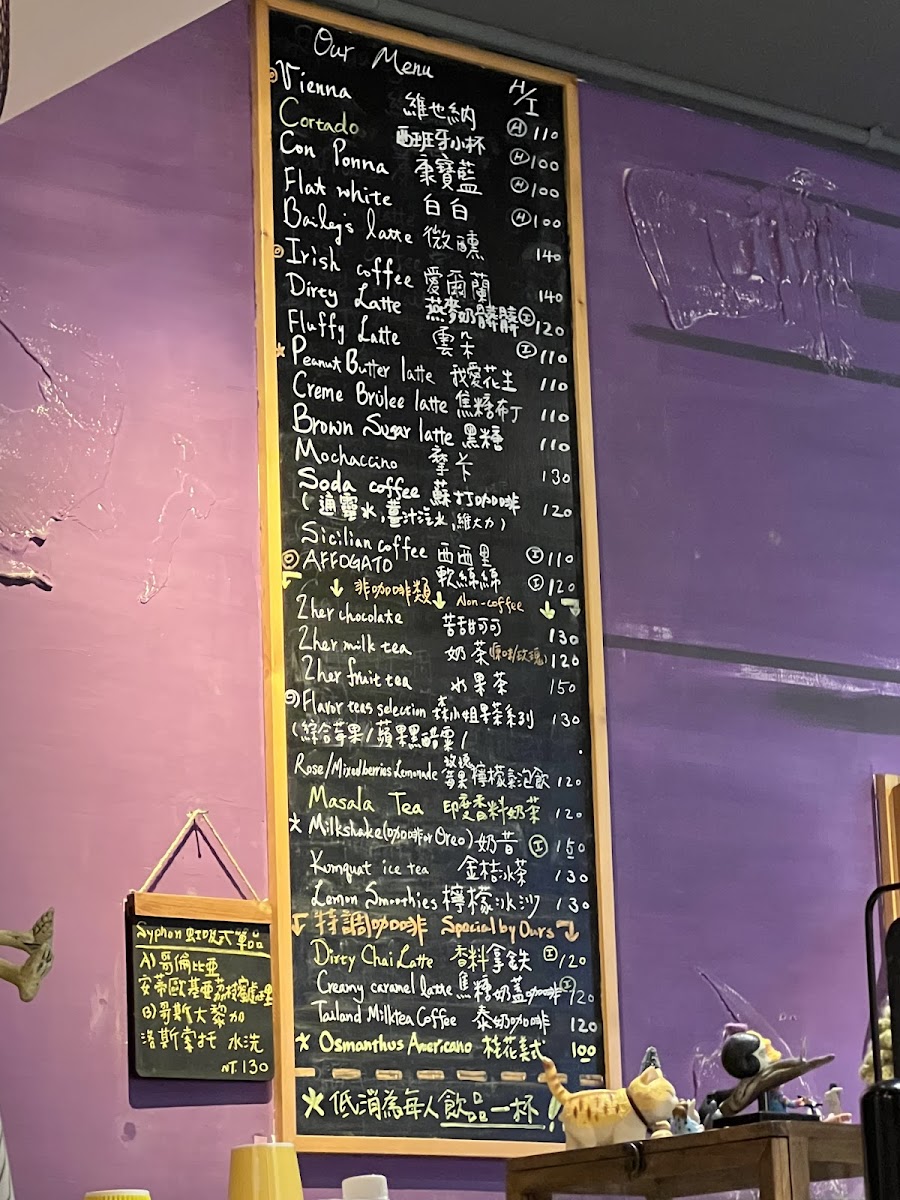 Our Menu
H/I
Vienna 維也納 Ⓗ 110
Cortado 西班牙小杯 Ⓗ 100
Con Ponna 康寶藍 Ⓗ 100
Flat white 白白 Ⓗ 100
Bailey's latte 微醺 140
Irish coffee 愛爾蘭 140
Dirty Latte 燕麥奶髒髒 Ⓘ 120
Fluffy Latte 雲朵 Ⓘ 110
★ Peanut Butter latte 我愛花生 110
Creme Brûlee latte 焦糖布丁 110
Brown Sugar latte 黑糖 110
Mochaccino 摩卡 130
Soda coffee 蘇打咖啡 120
(通靈水,薑汁汽水,維大力)
Sicilian coffee 西西里 Ⓘ 110
AFFOGATO 軟綿綿 Ⓘ 120
↓ 非咖啡類 ↓ Non-coffee ↓
2her chocolate 苦甜可可 130
2her milk tea 奶茶(原味/玫瑰) 120
2her fruit tea 水果茶 150
Flavor teas selection 森小姐果茶系列 130
(綜合莓果/蘋果黑醋栗/
Rose/Mixedberries Lemonade 玫瑰莓果檸檬氣泡飲 120
Masala Tea 印度香料奶茶 120
★ Milkshake(咖啡or Oreo)奶昔 Ⓘ 150
Kumquat ice tea 金桔冰茶 130
Lemon Smoothies 檸檬冰沙 130
特調咖啡 Special by Ours
Dirty Chai Latte 香料拿鐵 Ⓘ 120
Creamy caramel latte 焦糖奶蓋咖啡 Ⓘ 120
Tailand Milktea Coffee 泰奶咖啡 120
★ Osmanthus Americano 桂花美式 100
★低消為每人飲品一杯!
Syphon 虹吸式單品
A)哥倫比亞
安蒂歐基亞荔枝蜜處理
B)哥斯大黎加
洛斯索托 水洗
NT.130